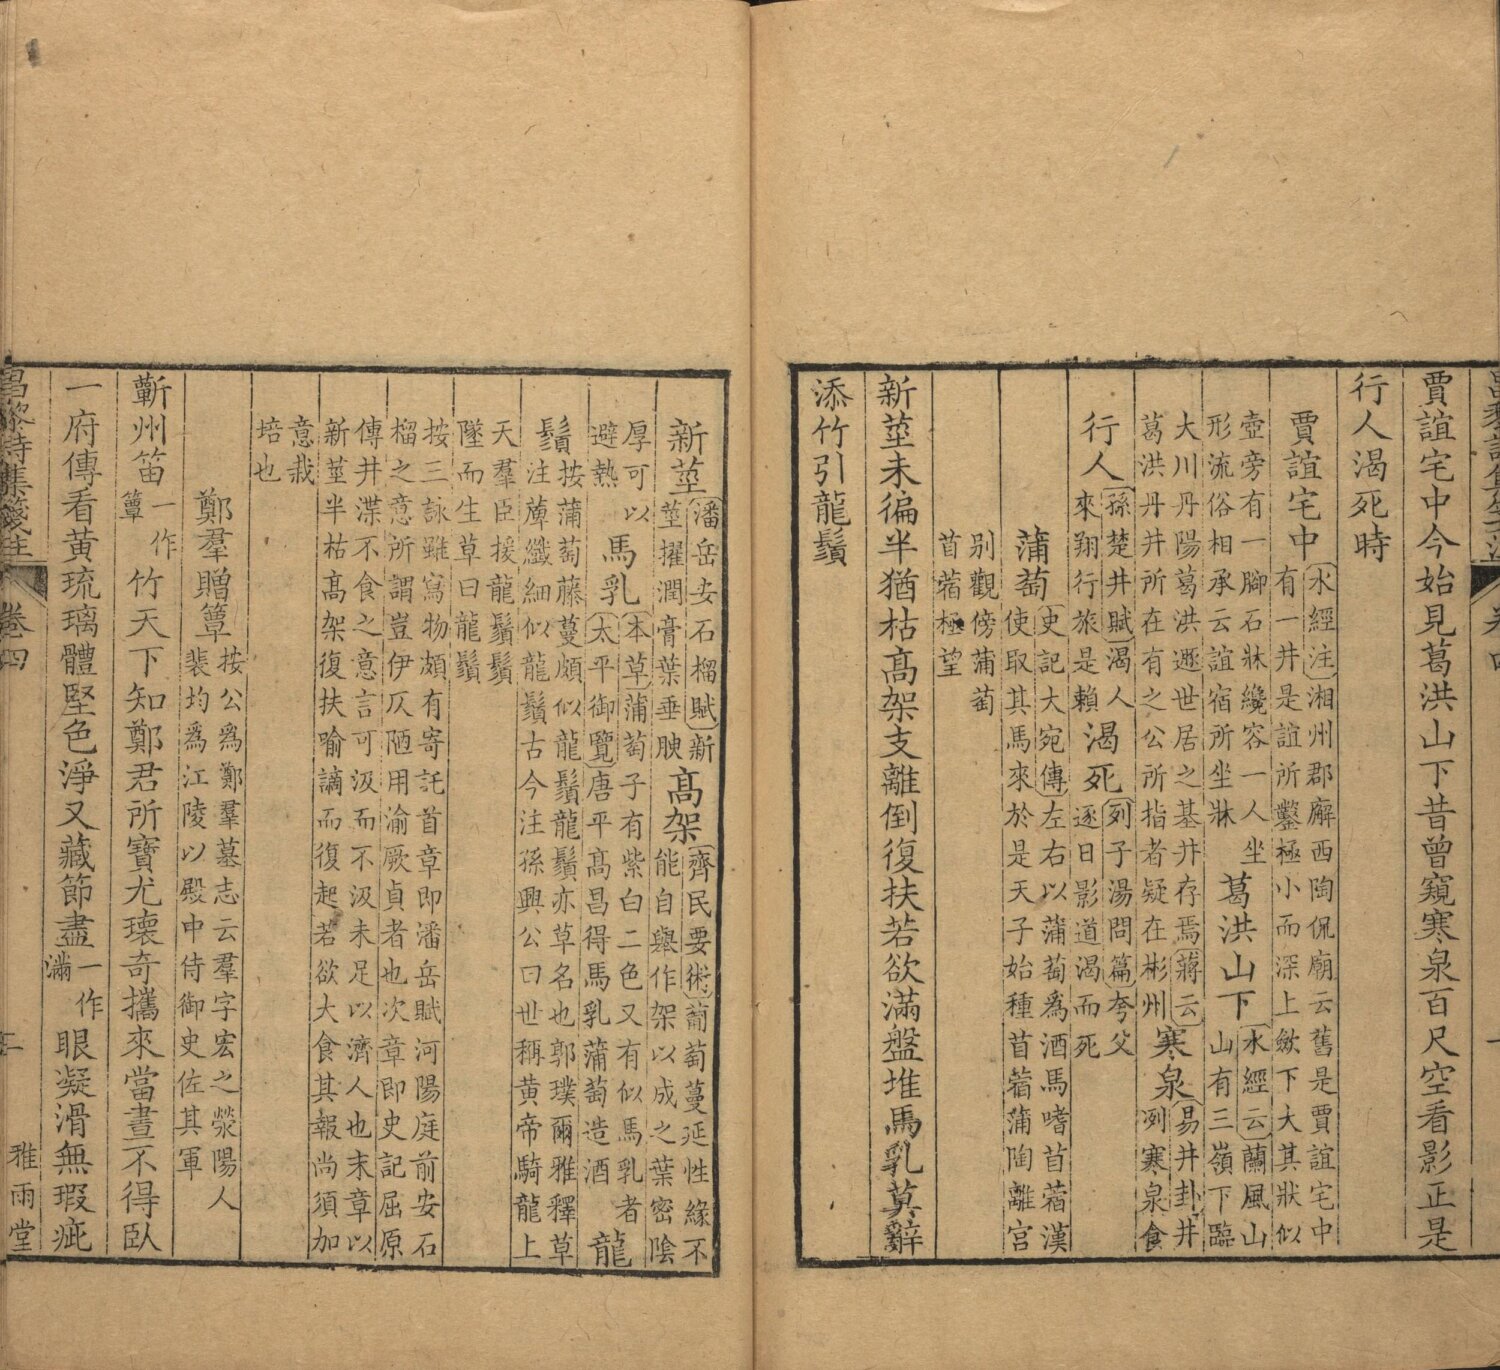 賈誼宅中今始見葛洪山下昔曾窺寒泉百尺空看影正是
行人渴死時
賈誼宅中水經注湘州郡廨西陶侃廟云舊是賈誼宅中
有一井是誼所鑿極小而深上斂下大其狀似
壺旁有一腳石牀纔容一人坐
形流俗相承云誼宿所坐牀葛洪山下水經云蘭風山
山有三嶺下臨
大川丹陽葛洪遯世居之基井存焉蔣云
葛洪丹井所在有之公所指者疑在彬州寒泉易井卦井
冽寒泉食
行人孫楚井賦渴人
來翔行旅是賴渴死列子湯問篇夸父
逐日影道渴而死
蒲萄史記大宛傳左右以蒲萄爲酒馬嗜苜蓿漢
使取其馬來於是天子始種苜蓿蒲陶離宮
別觀傍蒲萄
苜蓿極望
新莖未徧半猶枯高架支離倒復扶若欲滿盤堆馬乳莫辭
添竹引龍鬚
新莖潘岳安石榴賦新
莖擢潤膏葉垂腴高架齊民要術葡萄蔓延性緣不
能自舉作架以成之葉密陰
厚可以
避熱馬乳本草蒲萄子有紫白二色又有似馬乳者
太平御覽唐平高昌得馬乳蒲萄造酒龍
鬚按蒲萄藤蔓頗似龍鬚龍鬚亦草名也郭璞爾雅釋草
注薡纖細似龍鬚古今注孫興公曰世稱黃帝騎龍上
天羣臣援龍鬚鬚
墜而生草曰龍鬚
按三詠雖寫物頗有寄託首章即潘岳賦河陽庭前安石
榴之意所謂豈伊仄陋用渝厥貞者也次章即史記屈原
傳井渫不食之意言可汲而不汲未足以濟人也末章以
新莖半枯高架復扶喻謫而復起若欲大食其報尚須加
意栽
培也
鄭羣贈簟按公爲鄭羣墓志云羣字宏之滎陽人
裴均爲江陵以殿中侍御史佐其軍
蘄州笛一作簟竹天下知鄭君所寶尤瓌奇攜來當晝不得臥
一府傳看黃琉璃體堅色淨又藏節盡一作滿眼凝滑無瑕疵
昌黎詩集箋注 卷四 雅雨堂